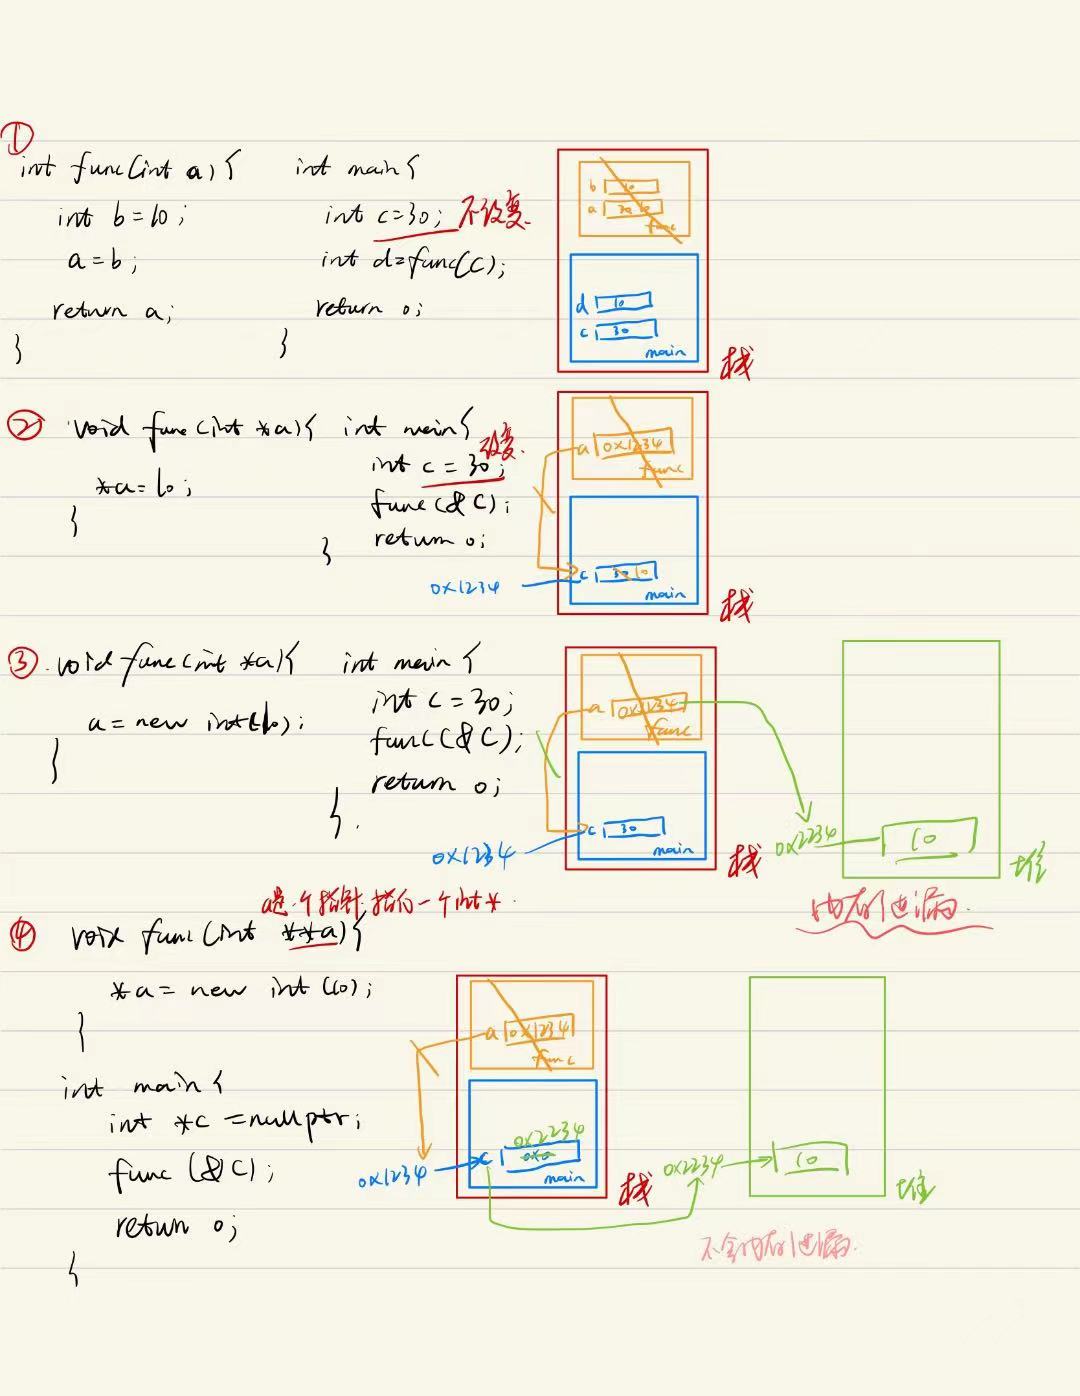 ①
int func(int a){
int b=10;
a=b;
return a;
}
int main{
int c=30; 不改变.
int d=func(c);
return 0;
}
b 10
a 30 10
func
d 10
c 30
main
栈
②
void func(int *a){
*a=10;
}
int main{
int c=30; 改变.
func(&c);
return 0;
}
0x1234
a 0x1234
func
c 30 10
main
栈
③
void func(int *a){
a=new int(10);
}
int main{
int c=30;
func(&c);
return 0;
}.
0x1234
a 0x1234
func
c 30
main
栈
0x2234
10
堆
内存泄漏.
a是一个指针,指向一个int*.
④
void func(int **a){
*a=new int(10);
}
int main{
int *c=nullptr;
func(&c);
return 0;
}
a 0x1234
func
0x1234
c
0x2234
0x0
main
栈
0x2234
10
堆
不会内存泄漏.